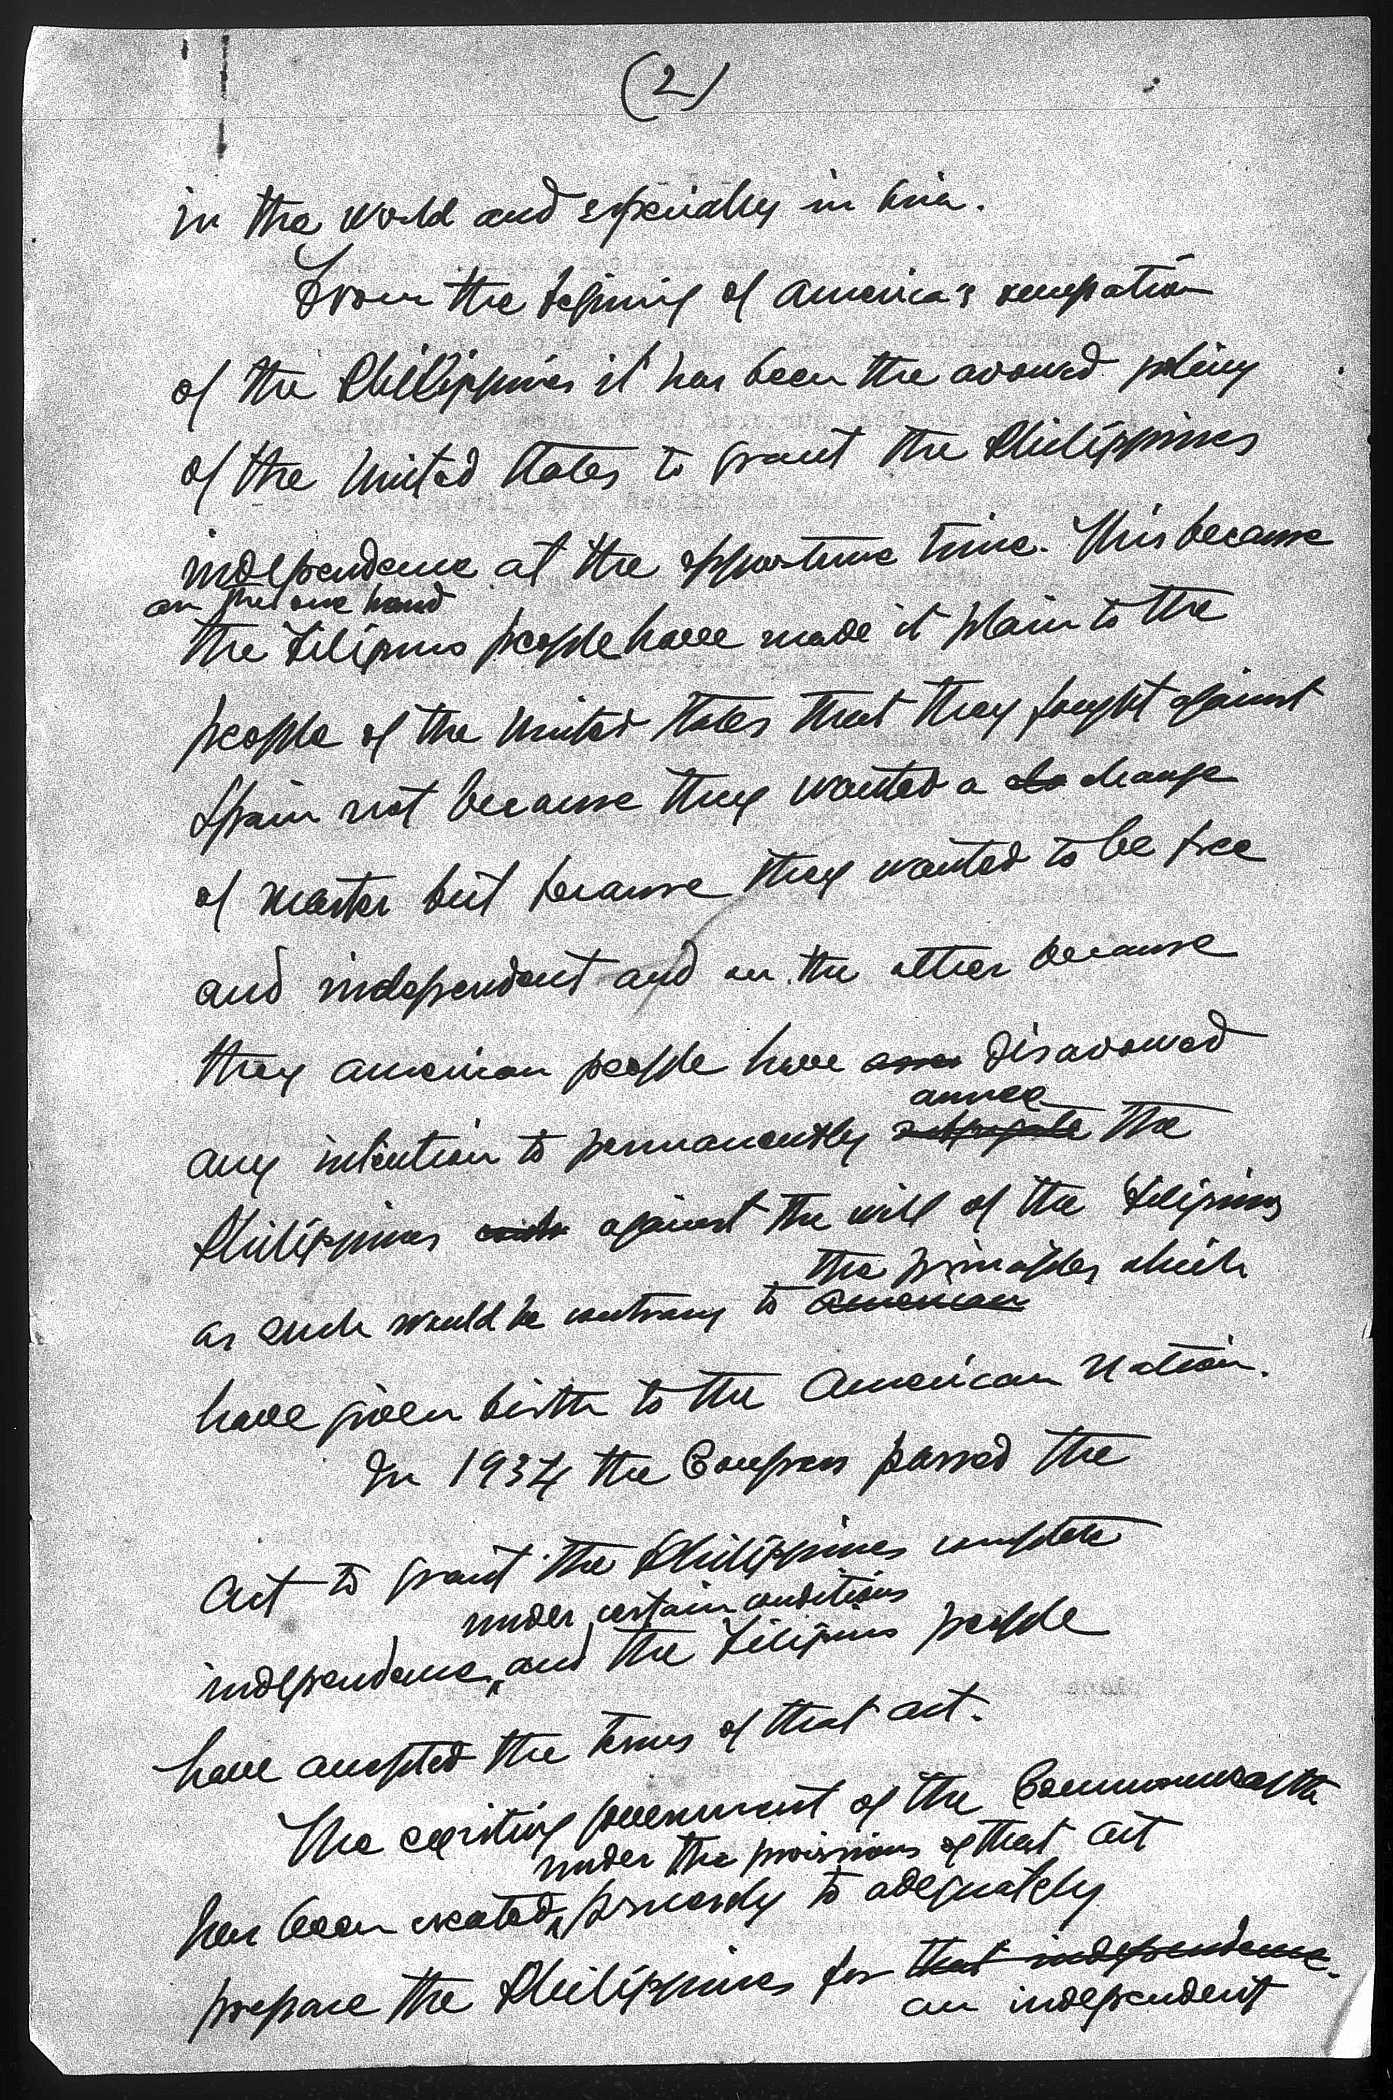 (2)
in the world and especially in Asia.
From the beginning of America's occupation
of the Philippines it has been the avowed policy
of the United States to grant the Philippines
independence at the opportune time. This because
on the one hand
the Filipino people have made it plain to the
people of the United States that they fought against
Spain not because they wanted a change
of master but because they wanted to be free
and independent and on the other because
they American people have disavowed
annex
any intention to permanently subjugate the
Philippines against the will of the Filipinos
the principles which
as such would be contrary to American
have given birth to the American Nation.
In 1934 the Congress passed the
Act to grant the Philippines complete
under certain conditions
independence, and the Filipino people
have accepted the terms of that act.
The existing government of the Commonwealth
under the provisions of that act
has been created, precisely to adequately
prepare the Philippines for that independence.
an independent